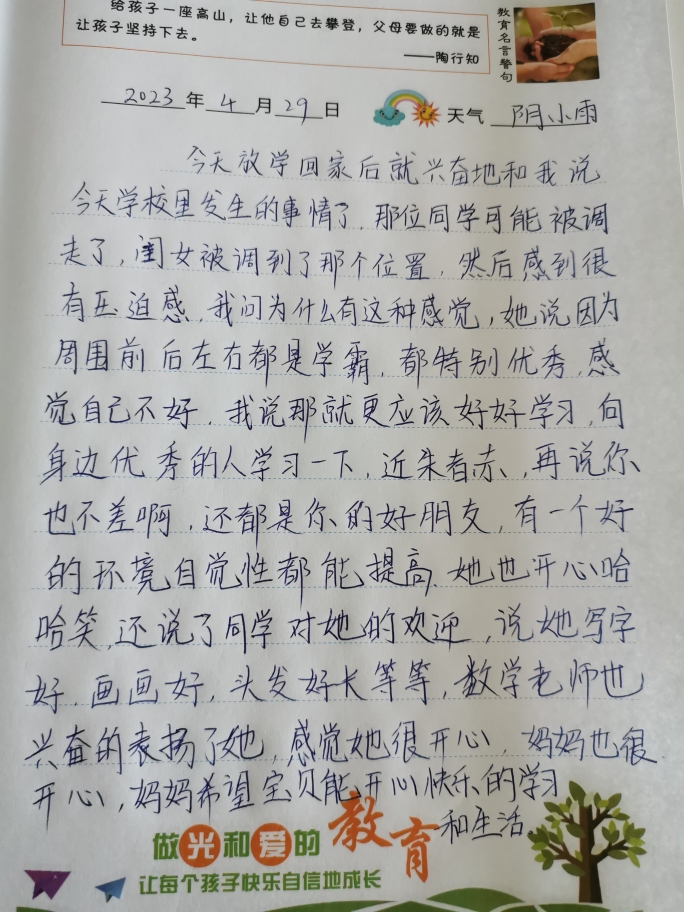 给孩子一座高山，让他自己去攀登，父母要做的就是
让孩子坚持下去。
——陶行知
教育名言警句
2023年4月29日 天气 阴小雨
今天放学回家后就兴奋地和我说
今天学校里发生的事情了，那位同学可能被调
走了，闺女被调到了那个位置，然后感到很
有压迫感，我问为什么有这种感觉，她说因为
周围前后左右都是学霸，都特别优秀，感
觉自己不好，我说那就更应该好好学习，向
身边优秀的人学习一下，近朱者赤，再说你
也不差啊，还都是你的好朋友，有一个好
的环境自觉性都能提高，她也开心哈
哈笑，还说了同学对她的欢迎，说她写字
好，画画好，头发好长等等，数学老师也
兴奋的表扬了她，感觉她很开心，妈妈也很
开心，妈妈希望宝贝能开心快乐的学习
和生活。
做光和爱的教育
让每个孩子快乐自信地成长